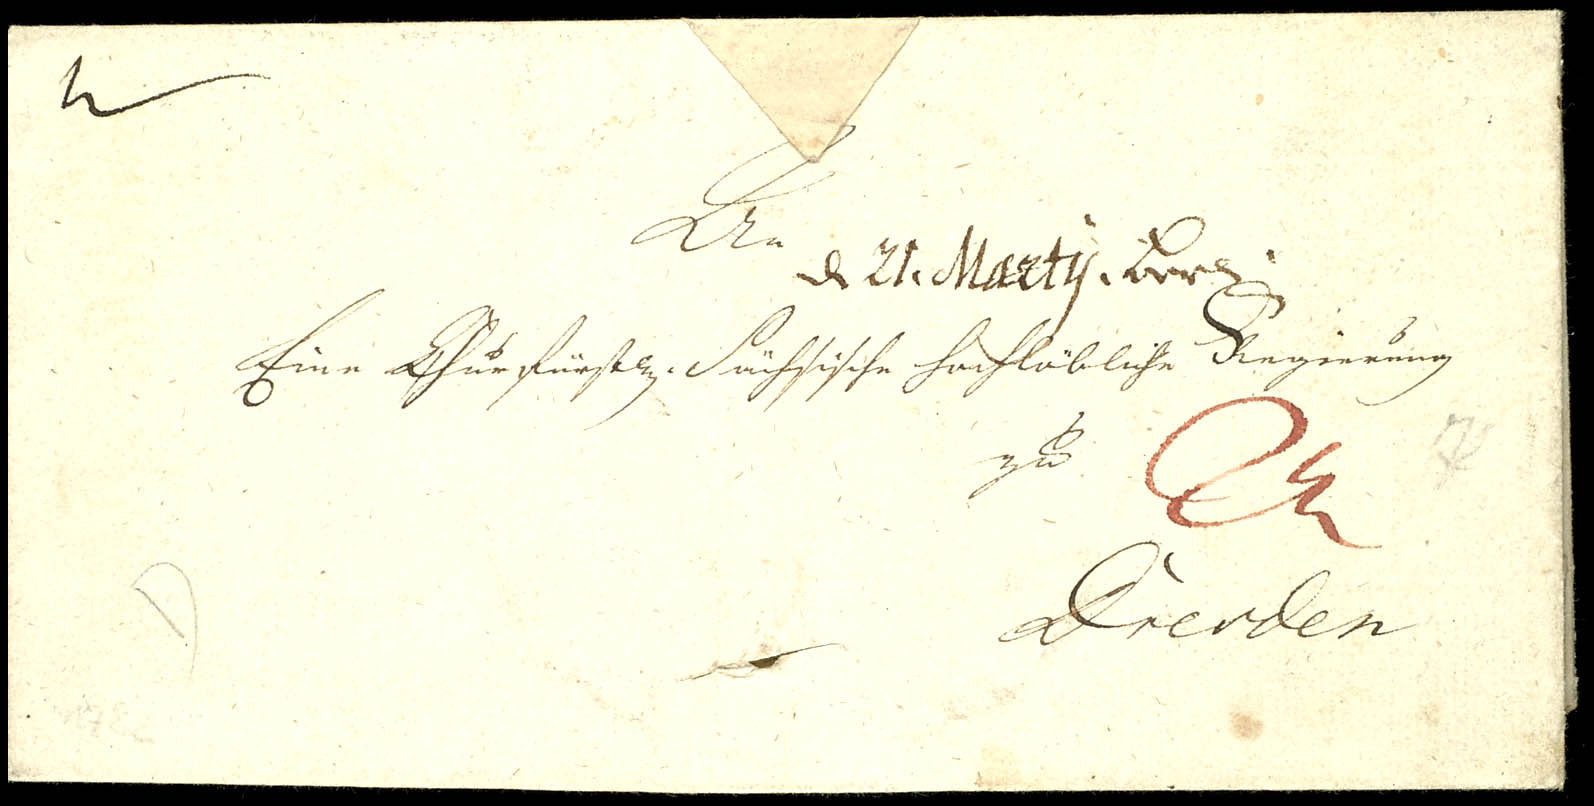 An
d 21. Martÿ.
Eine Churfürstl. Sächsische hochlöbliche Regierung
zu
Dresden